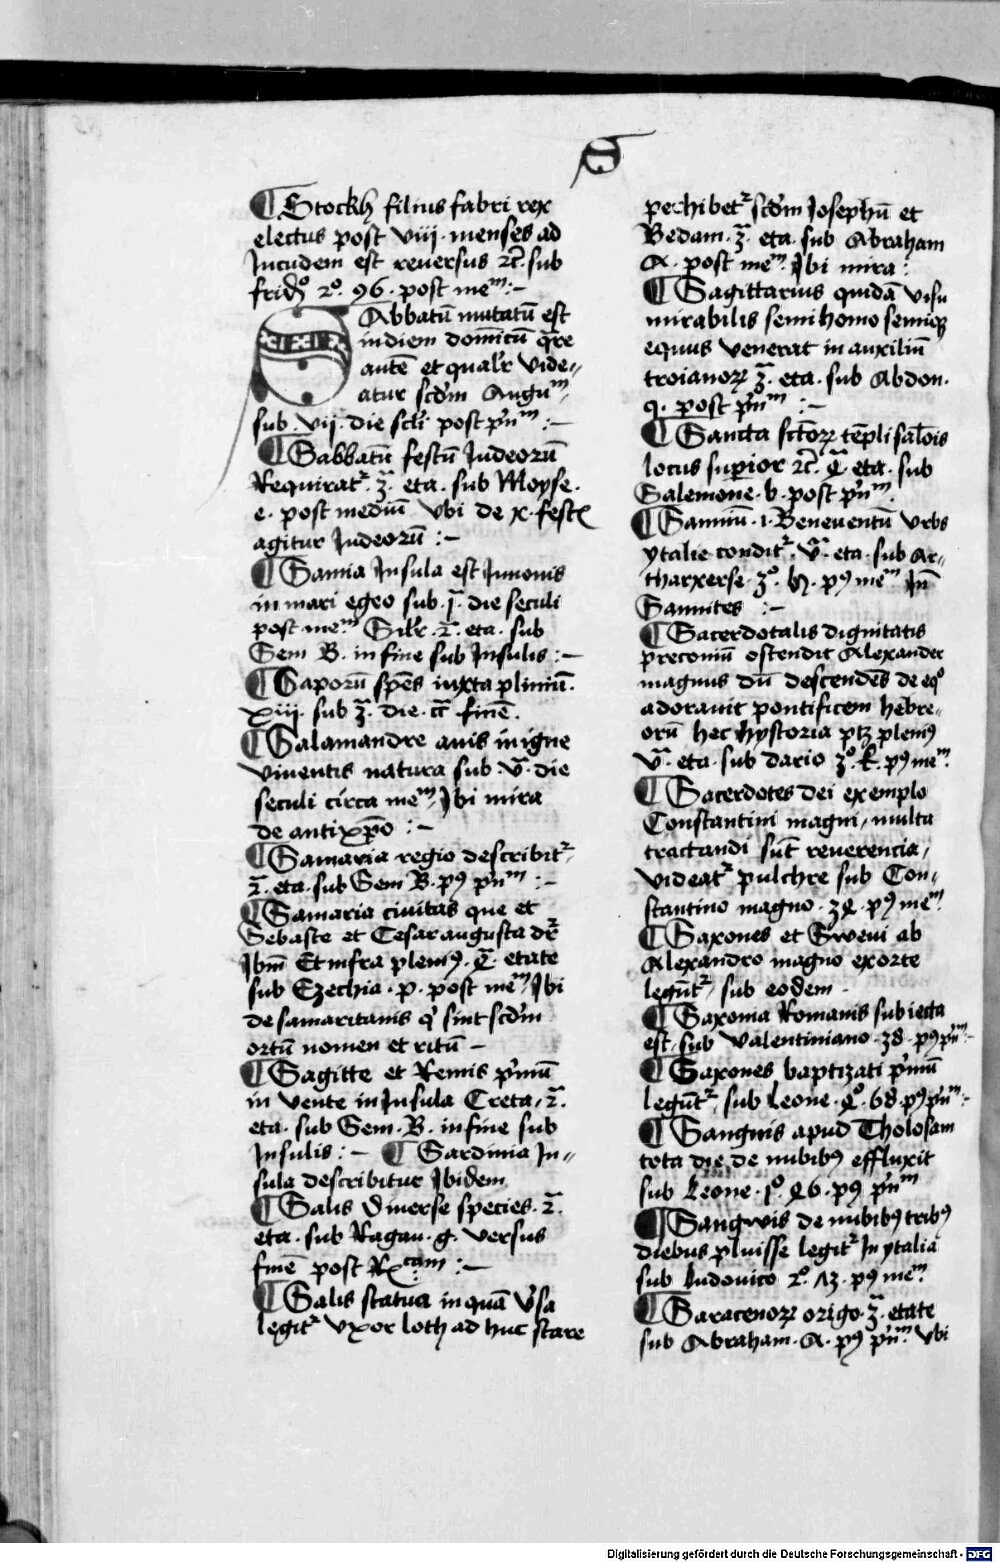 S
¶ Stockh filius fabri rex
electus post viii · menses ad
Incudem est reversus ⁊c̃ · sub
frid̃o 2º · 96 · post meᵐ :-
Sabbatū mutatū est
in diem domīcū qͣre
autē et qualr̃ vide⸗
atur scd̃m Augu᷑ᵐ
sub · vij · die scl̃i post p̃nᵐ :-
¶ Sabbatū festū Iudeorū
Requirat᷑ · 3ª · eta · sub Moyse ·
e · post mediū vbi de x · festꝭ
agitur Iudeorū :-
¶ Samia Insula est Iunonis
in mari egeo sub · 1ª · die seculi
post meᵐ Silr̃ · 2ª · eta · sub
Sem B · in fine sub Insulis :-
¶ Saporū sp̃es iuxta pliniū ·
xiii · sub 3ª · die · cͣ finē ·
¶ Salamandre avis in igne
viventis natura sub · vª · die
seculi circa meᵐ Ibi mira
de antixp̃o :-
¶ Samaria regio describit᷑
2ª · eta · sub Sem B · pꝰ p̃nᵐ :-
¶ Samaria civitas que et
Sebaste et Cesaraugusta dr̃
Ibm̃ Et infra pleniꝰ · 4ª · etate
sub Ezechia · p · post meᵐ Ibi
de samaritanis qͥ sint scd̃m
ortū nomen et ritū -
¶ Sagitte et Remis p̃mū
in vente in Insula Creta · 2ª ·
eta · sub Sem · B · in fine sub
Insulis :- ¶ Sardinia In⸗
sula describitur Ibidem
¶ Salis diverse species · 2ª ·
eta · sub Ragau · g · versus
finē post Rᵗᵃᵐ :-
¶ Salis statua in quā v̓sa
legit᷑ vxor loth ad huc stare
perhibet᷑ scd̃m Iosephū et
Bedam · 3ª · eta · sub Abraham
A · post meᵐ · Ibi mira :
¶ Sagittarius quidā visu
mirabilis semihomo semiqꝫ
equus venerat in auxiliū
troianoꝝ 3ª · eta · sub Abdon ·
q · post p̃nᵐ :-
¶ Sancta sctoꝝ tēpli salōis
locus superior ⁊c̃ · 4ª eta · sub
Salemone · b · post p̃nᵐ ·
¶ Samniū · i · Beneventū vrbs
ytalie condit᷑ · vª · eta · sub Ar⸗
tharxerse · 3º · h · pꝰ meᵐ In̄
Samnites :-
¶ Sacerdotalis dignitatis
preconiū ostendit Alexander
magnus dū descendēs de eqͦ
adoravit pontificem hebre⸗
orū hec hystoria ptꝫ pleniꝰ
vª · eta · sub dario 3º · k · pꝰ meᵐ ·
¶ Sacerdotes dei exemplo
Constantini magni, multa
tractandi sūt reverencia,
videat᷑ pulchre sub Con⸗
stantino magno · 34 · pꝰ meᵐ ·
¶ Saxones et Swevi ab
Alexandro magno exorte
legūt᷑, sub eodem -
¶ Saxonia Romanis subiecta
est, sub Valentiniano · 38 · pꝰ p̃nᵐ :-
¶ Saxones baptizati p̃mū
legūt᷑, sub Leone · 4º · 68 · pꝰ p̃nᵐ :-
¶ Sanguis apud Tholosam
tota die de nubibꝰ effluxit
sub Leone · 1º · 46 · pꝰ p̃nᵐ
¶ Sangwis de nubibꝰ tribꝰ
diebus pluisse legit᷑ In ytalia
sub Ludovico 2º · 73 · pꝰ meᵐ ·
¶ Saracenoꝝ origo · 3ª · etate
sub Abraham · A · pꝰ p̃nᵐ · vbi
Digitalisierung gefördert durch die Deutsche Forschungsgemeinschaft - DFG